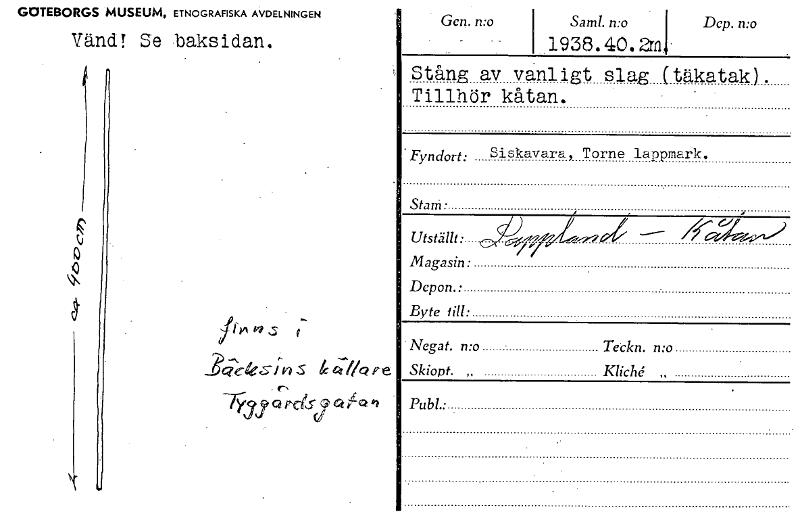 GÖTEBORGS MUSEUM, ETNOGRAFISKA AVDELNINGEN
Vänd! Se baksidan.
ca 400 cm
finns i
Bäcksins källare
Tyggårdsgatan
Gen. n:o
Saml. n:o
Dep. n:o
1938.40.2m.
Stång av vanligt slag (täkatak).
Tillhör kåtan.
Fyndort: Siskavara, Torne lappmark.
Stam:
Utställt: Lappland – Kåtan
Magasin:
Depon.:
Byte till:
Negat. n:o Teckn. n:o
Skiopt. „ Kliché „
Publ.: